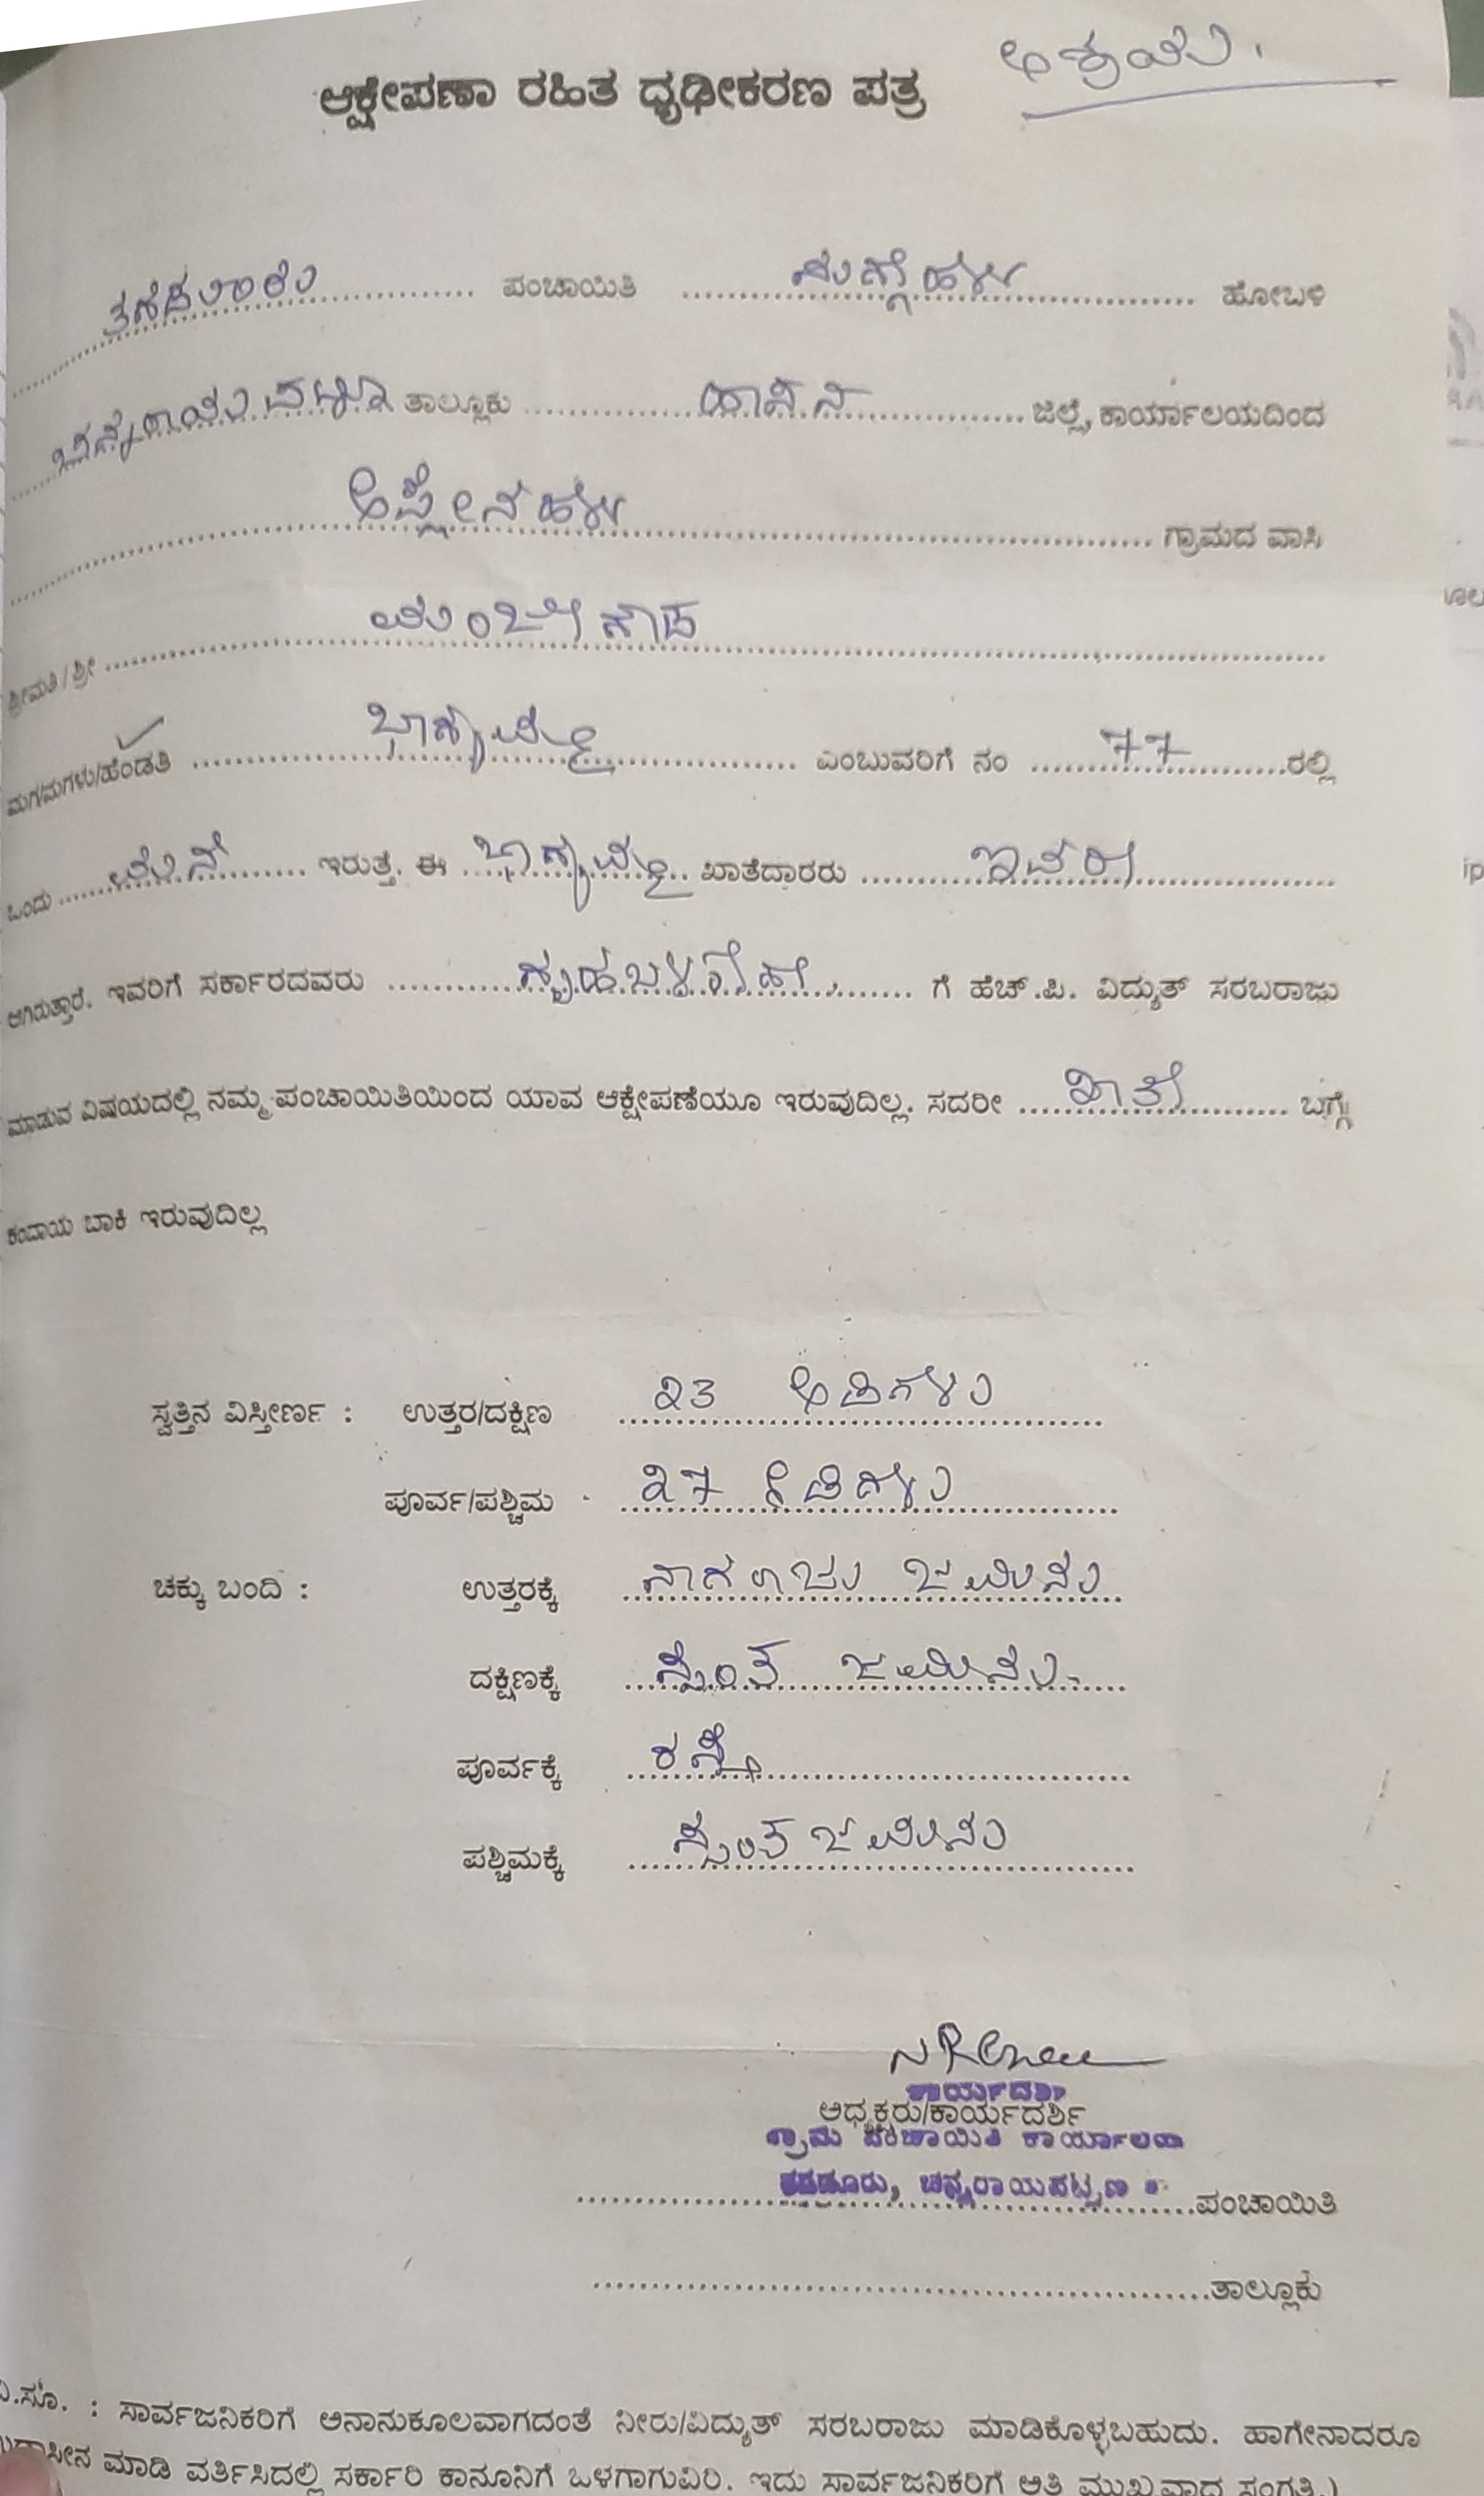 ಆಶ್ರಯ.
ಆಕ್ಷೇಪಣಾ ರಹಿತ ಧೃಢೀಕರಣ ಪತ್ರ
ಪಂಚಾಯಿತಿ ನುಗ್ಗೆಹಳ್ಳಿ ಹೋಬಳಿ
ಚನ್ನರಾಯಪಟ್ಟಣ ತಾಲ್ಲೂಕು ಹಾಸನ ಜಿಲ್ಲೆ, ಕಾರ್ಯಾಲಯದಿಂದ
ಗ್ರಾಮದ ವಾಸಿ
ಶ್ರೀಮತಿ / ಶ್ರೀ ಮಂಜೇಗೌಡ
ಮಗ/ಮಗಳು/ಹೆಂಡತಿ ಭಾಗ್ಯಮ್ಮ ಎಂಬುವರಿಗೆ ನಂ 77 ರಲ್ಲಿ
ಒಂದು ಮನೆ ಇರುತ್ತೆ. ಈ ಭಾಗ್ಯಮ್ಮ ಖಾತೆದಾರರು ಇವರು
ಆಗಿರುತ್ತಾರೆ. ಇವರಿಗೆ ಸರ್ಕಾರದವರು ಗೃಹಬಳಕೆ ಗೆ ಹೆಚ್.ಪಿ. ವಿದ್ಯುತ್ ಸರಬರಾಜು
ಮಾಡುವ ವಿಷಯದಲ್ಲಿ ನಮ್ಮ ಪಂಚಾಯಿತಿಯಿಂದ ಯಾವ ಆಕ್ಷೇಪಣೆಯೂ ಇರುವುದಿಲ್ಲ. ಸದರೀ ಖಾತೆ ಬಗ್ಗೆ
ಕಂದಾಯ ಬಾಕಿ ಇರುವುದಿಲ್ಲ
ಸ್ವತ್ತಿನ ವಿಸ್ತೀರ್ಣ : ಉತ್ತರ/ದಕ್ಷಿಣ 23 ಅಡಿಗಳು
ಪೂರ್ವ/ಪಶ್ಚಿಮ 27 ಅಡಿಗಳು
ಚಕ್ಕು ಬಂದಿ : ಉತ್ತರಕ್ಕೆ ನಾಗರಾಜು ಜಮೀನು
ದಕ್ಷಿಣಕ್ಕೆ ಸ್ವಂತ ಜಮೀನು.
ಪೂರ್ವಕ್ಕೆ ರಸ್ತೆ
ಪಶ್ಚಿಮಕ್ಕೆ ಸ್ವಂತ ಜಮೀನು
ಕಾರ್ಯದರ್ಶಿ
ಅಧ್ಯಕ್ಷರು/ಕಾರ್ಯದರ್ಶಿ
ಗ್ರಾಮ ಪಂಚಾಯಿತಿ ಕಾರ್ಯಾಲಯ
ಚನ್ನರಾಯಪಟ್ಟಣ ಪಂಚಾಯಿತಿ
ತಾಲ್ಲೂಕು
ವಿ.ಸೂ. : ಸಾರ್ವಜನಿಕರಿಗೆ ಅನಾನುಕೂಲವಾಗದಂತೆ ನೀರು/ವಿದ್ಯುತ್ ಸರಬರಾಜು ಮಾಡಿಕೊಳ್ಳಬಹುದು. ಹಾಗೇನಾದರೂ
ಮಾಡಿ ವರ್ತಿಸಿದಲ್ಲಿ ಸರ್ಕಾರಿ ಕಾನೂನಿಗೆ ಒಳಗಾಗುವಿರಿ. ಇದು ಸಾರ್ವಜನಿಕರಿಗೆ ಅತಿ ಮುಖ್ಯವಾದ ಸಂಗತಿ.)